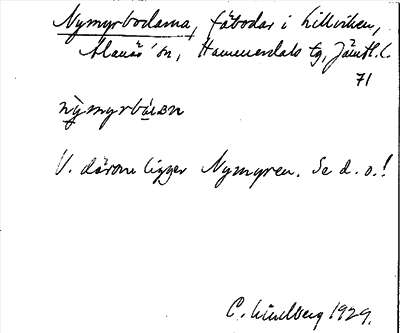 Nymyrbodarna, fäbodar i Lillviken,
Alanäs sn, Hammerdals tg, Jämtl. l.
71
nỳmyrbúɜn
V. därom ligger Nymyren. Se d. o.!
C. Lindberg 1929.